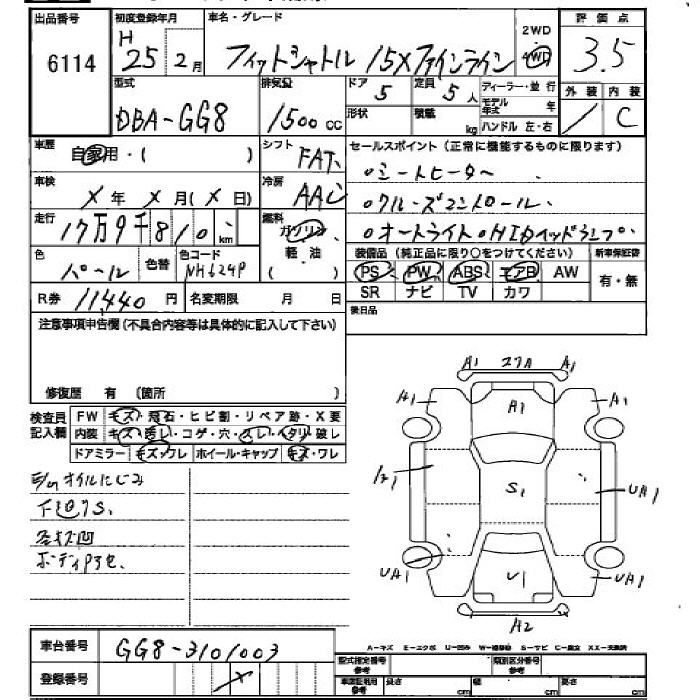 出品番号 初度登録年月 車名・グレード 2WD 4WD 評価点
6114 H 25年 2月 フィットシャトル 15Xファインライン 3.5
型式 排気量 ドア 5 定員 5人 ディーラー・並行 外装 内装
DBA-GG8 1500cc 形状 積載 kg モデル年式 年 C
ハンドル 左・右
車歴 自家用・( ) シフト FAT セールスポイント(正常に機能するものに限ります)
車検 X年 X月(X日) 冷房 AAC ○シートヒーター
走行 17万9千810km 燃料 ガソリン ○クルーズコントロール
軽・油 ( ) ○オートライト ○HID
色 パール 色替 色コード NH624P 装備品(純正品に限り○をつけてください) 新車保証書
PS PW ABS エアB AW 有・無
R券 11440円 名変期限 月 日 SR ナビ TV カワ
注意事項申告欄(不具合内容等は具体的に記入して下さい) 後日品
修復歴 有 (箇所 )
検査員記入欄 FW キズ・飛石・ヒビ割・リペア跡・X要
内装 キズ・汚れ・コゲ・穴・スレ・ヘタリ・破レ
ドアミラー キズ・ワレ ホイール・キャップ キズ・ワレ
A1 27A A1
A1 A1 A1
S1 UA1
UA1 U1 UA1
A2
オイルにじみ
下廻りS.
各キズ凹
車台番号 GG8-3101003
A-キズ E-エクボ U-凹み W-補修跡 S-サビ C-腐食 XX-交換済
登録番号 X 型式指定番号 参考 類別区分番号 参考
車庫証明用 参考 長さ cm 幅 cm 高さ cm